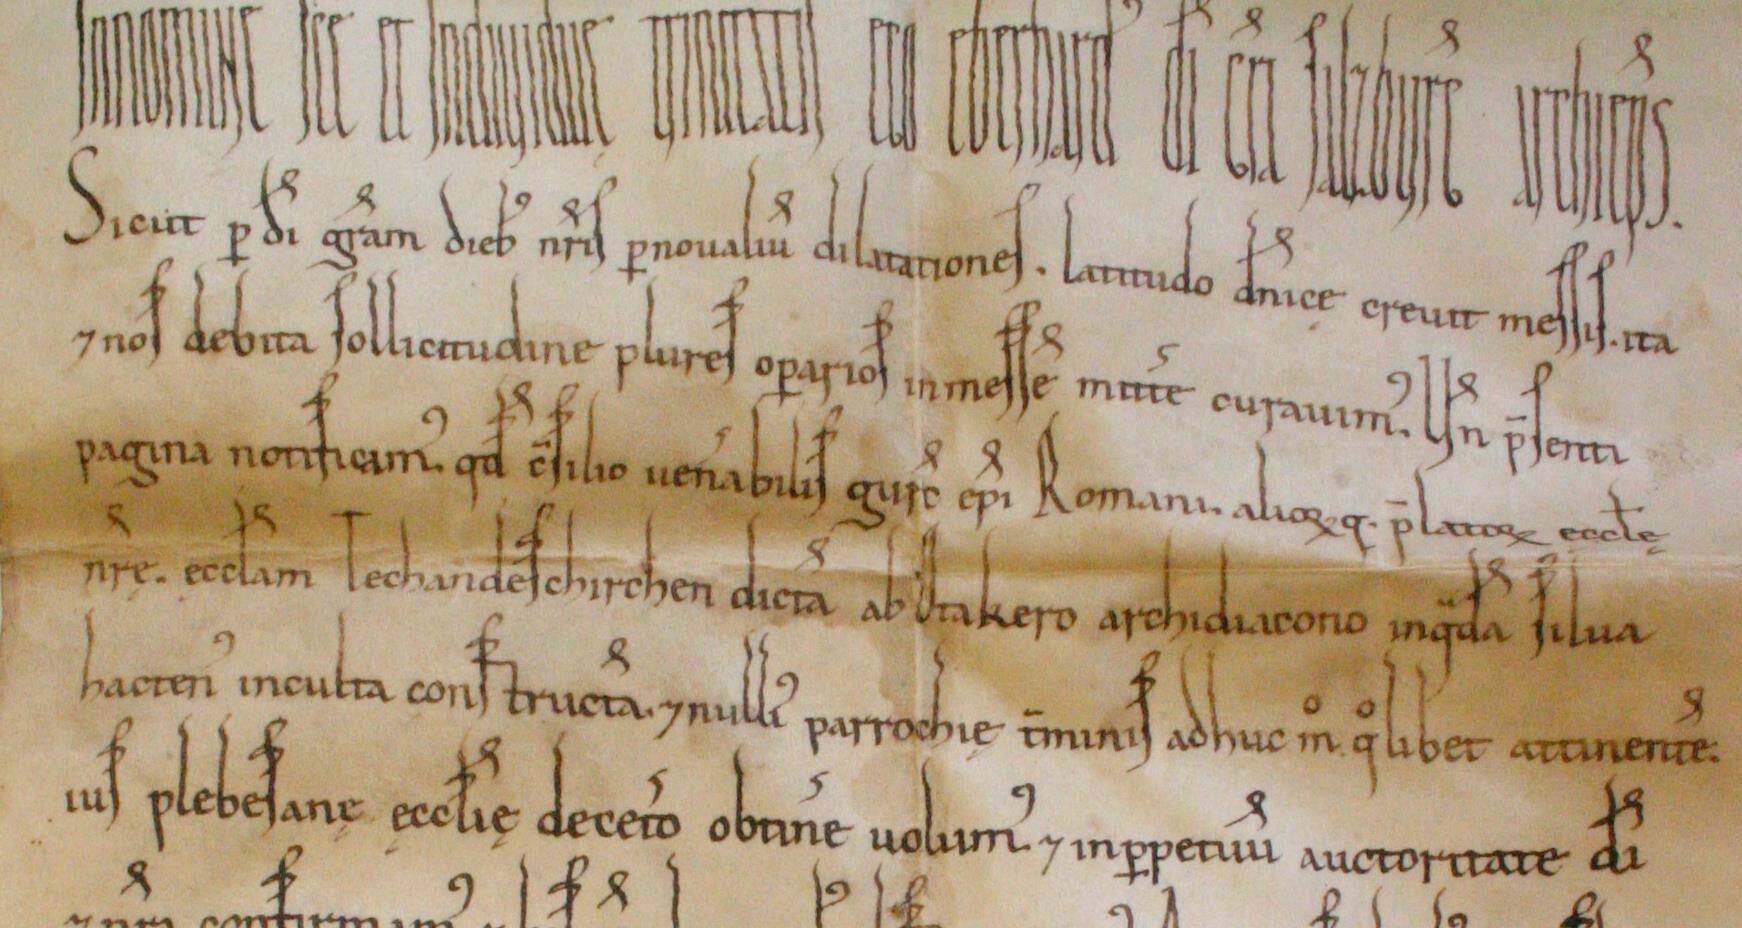 In nomine sce et indiuidue trinitatis ego eberhard' di gra salzburg archieps.
Sicut p di gram dieb' nris p noualiu dilatationes. latitudo dnice creuit messis. ita
⁊ nos debita sollicitudine plures oparios in messe mitte curauim'. Vn psenti
pagina notificam'. qd csilio uenabilis gurc epi Romani. alioꝝ q. platoꝝ eccle
nre. ecclam Techandeschirchen dicta ab Otakero archidiacono in qda silua
hacten' inculta constructa. ⁊ null' parrochie tminis adhuc mo qolibet attinente.
ius plebesane ecclie deceto obtine uolum' ⁊ in ppetuu auctoritate di
⁊ nri confirmam'